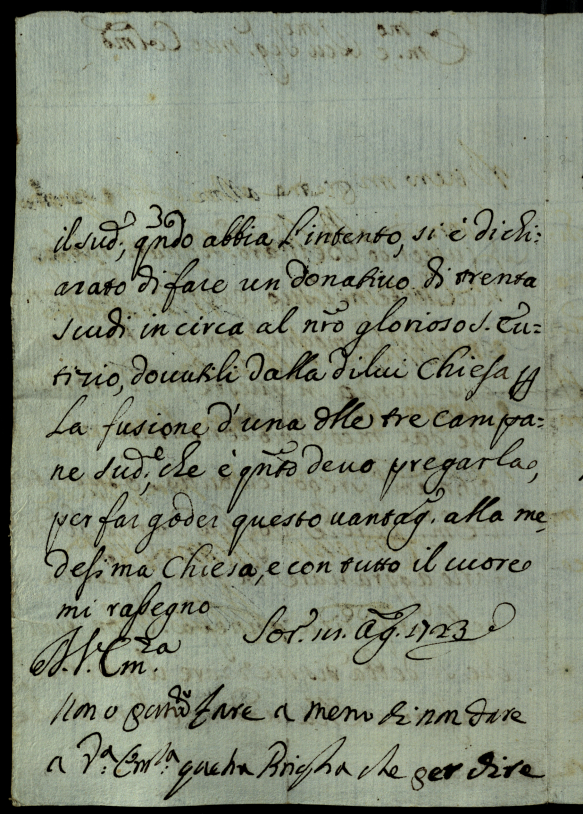 il sud.º, q̃ndo abbia l'intento, si è dichi=
arato di fare un donativo di trenta
scudi incirca al nr̃o glorioso S. Eu=
tizio, dovutili dalla di lui Chiesa ꝑ
La fusione d'una dlle tre campa=
ne sud.e, che è q̃nto devo pregarla,
per far goder questo vantag.º alla me,
desima Chiesa, e con tutto il cuore
mi rassegno
Sor.º 11. Ag.º 1723
D. V. Em.za
Non o fare a meno di non dare
a V.a Em.za questa Briga che per dire